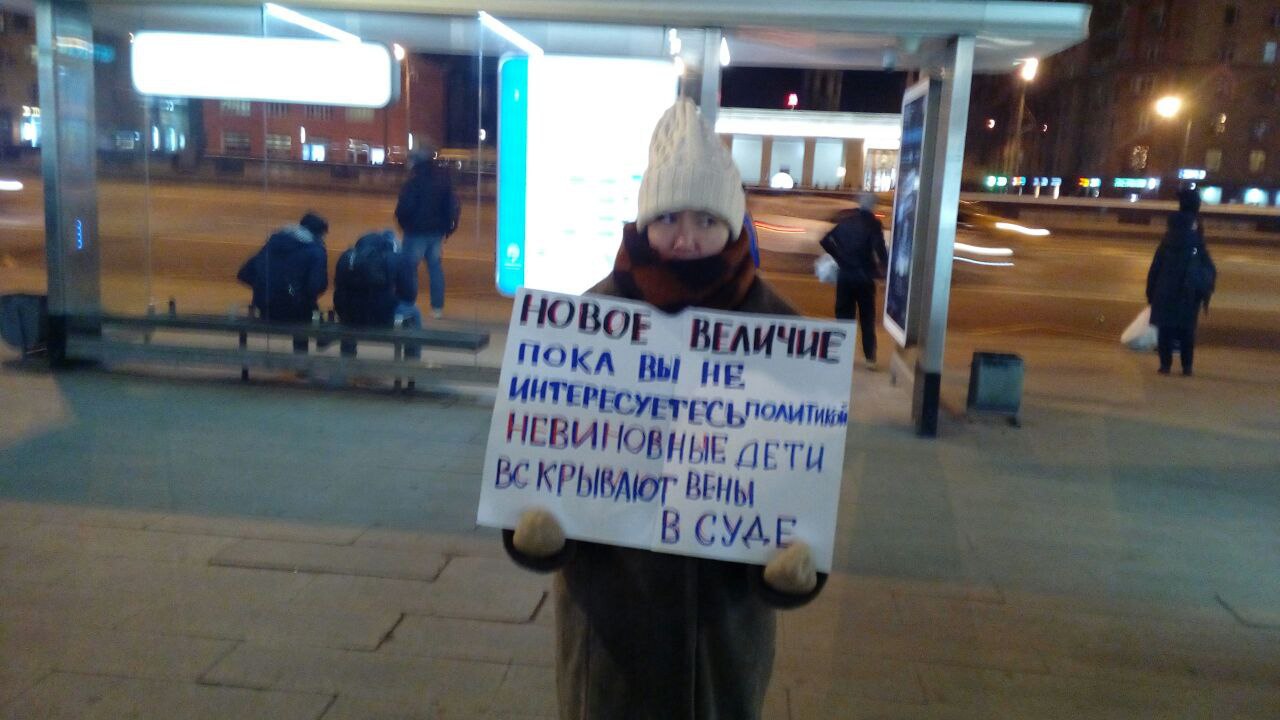 НОВОЕ ВЕЛИЧИЕ
ПОКА ВЫ НЕ
ИНТЕРЕСУЕТЕСЬ ПОЛИТИКОЙ
НЕВИНОВНЫЕ ДЕТИ
ВСКРЫВАЮТ ВЕНЫ
В СУДЕ